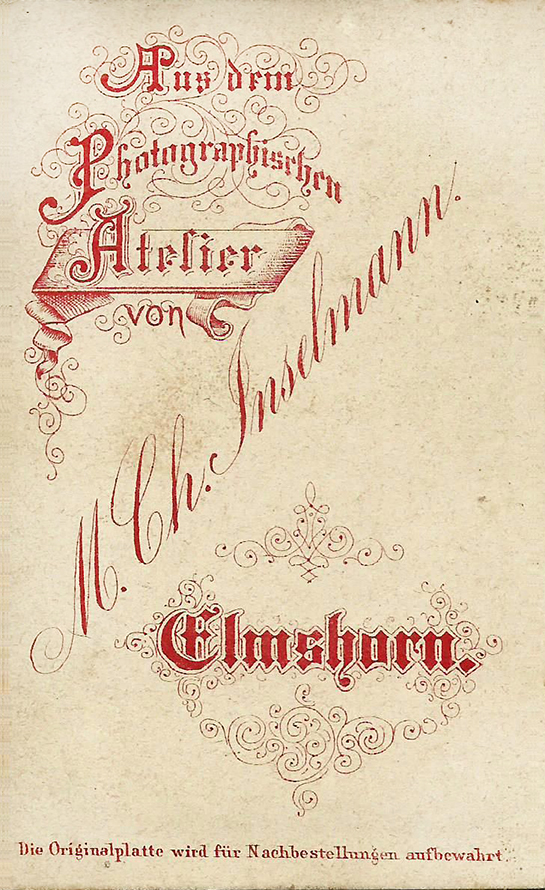 Aus dem
Photographischen
Atelier
von
M. Ch. Inselmann.
Elmshorn.
Die Originalplatte wird für Nachbestellungen aufbewahrt.